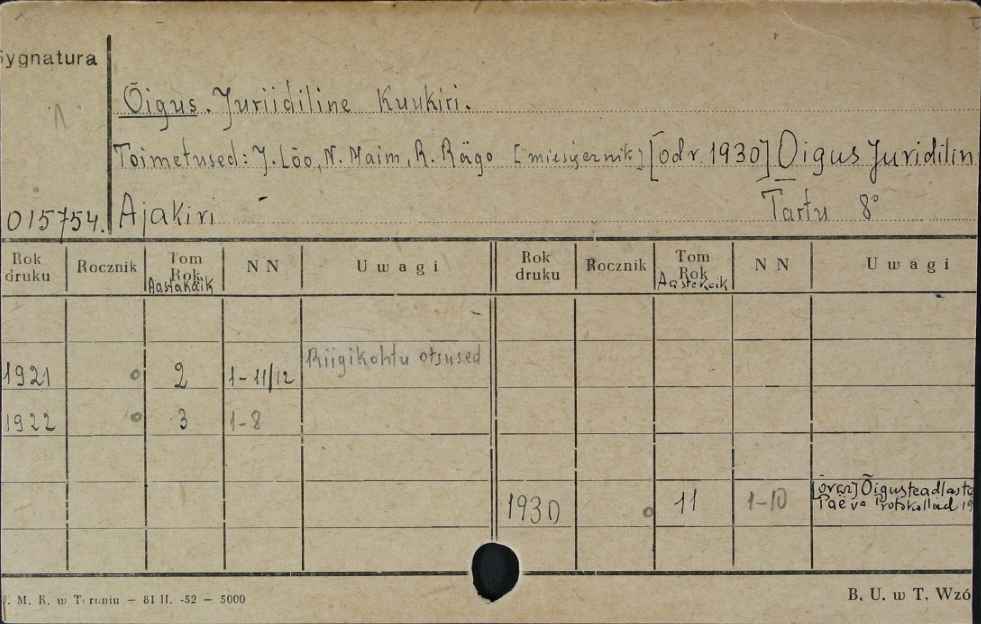 Sygnatura
Õigus. Juriidiline Kuukiri.
Toimetused: J. Lõo, N. Maim, R. Rägo [miesięcznik] [od r. 1930] Õigus Juridilin
015754. Ajakiri Tartu 8°
Rok druku Rocznik Tom Rok Aastakäik NN Uwagi Rok druku Rocznik Tom Rok Aastakäik NN Uwagi
Riigikohtu otsused
1921 2 1-11/12
1922 3 1-8
1930 11 1-10 Õigusteadlaste
Päeva Protokollid 19
M. K. w Toruniu — 81 II. -52 — 5000 B. U. w T. Wzó